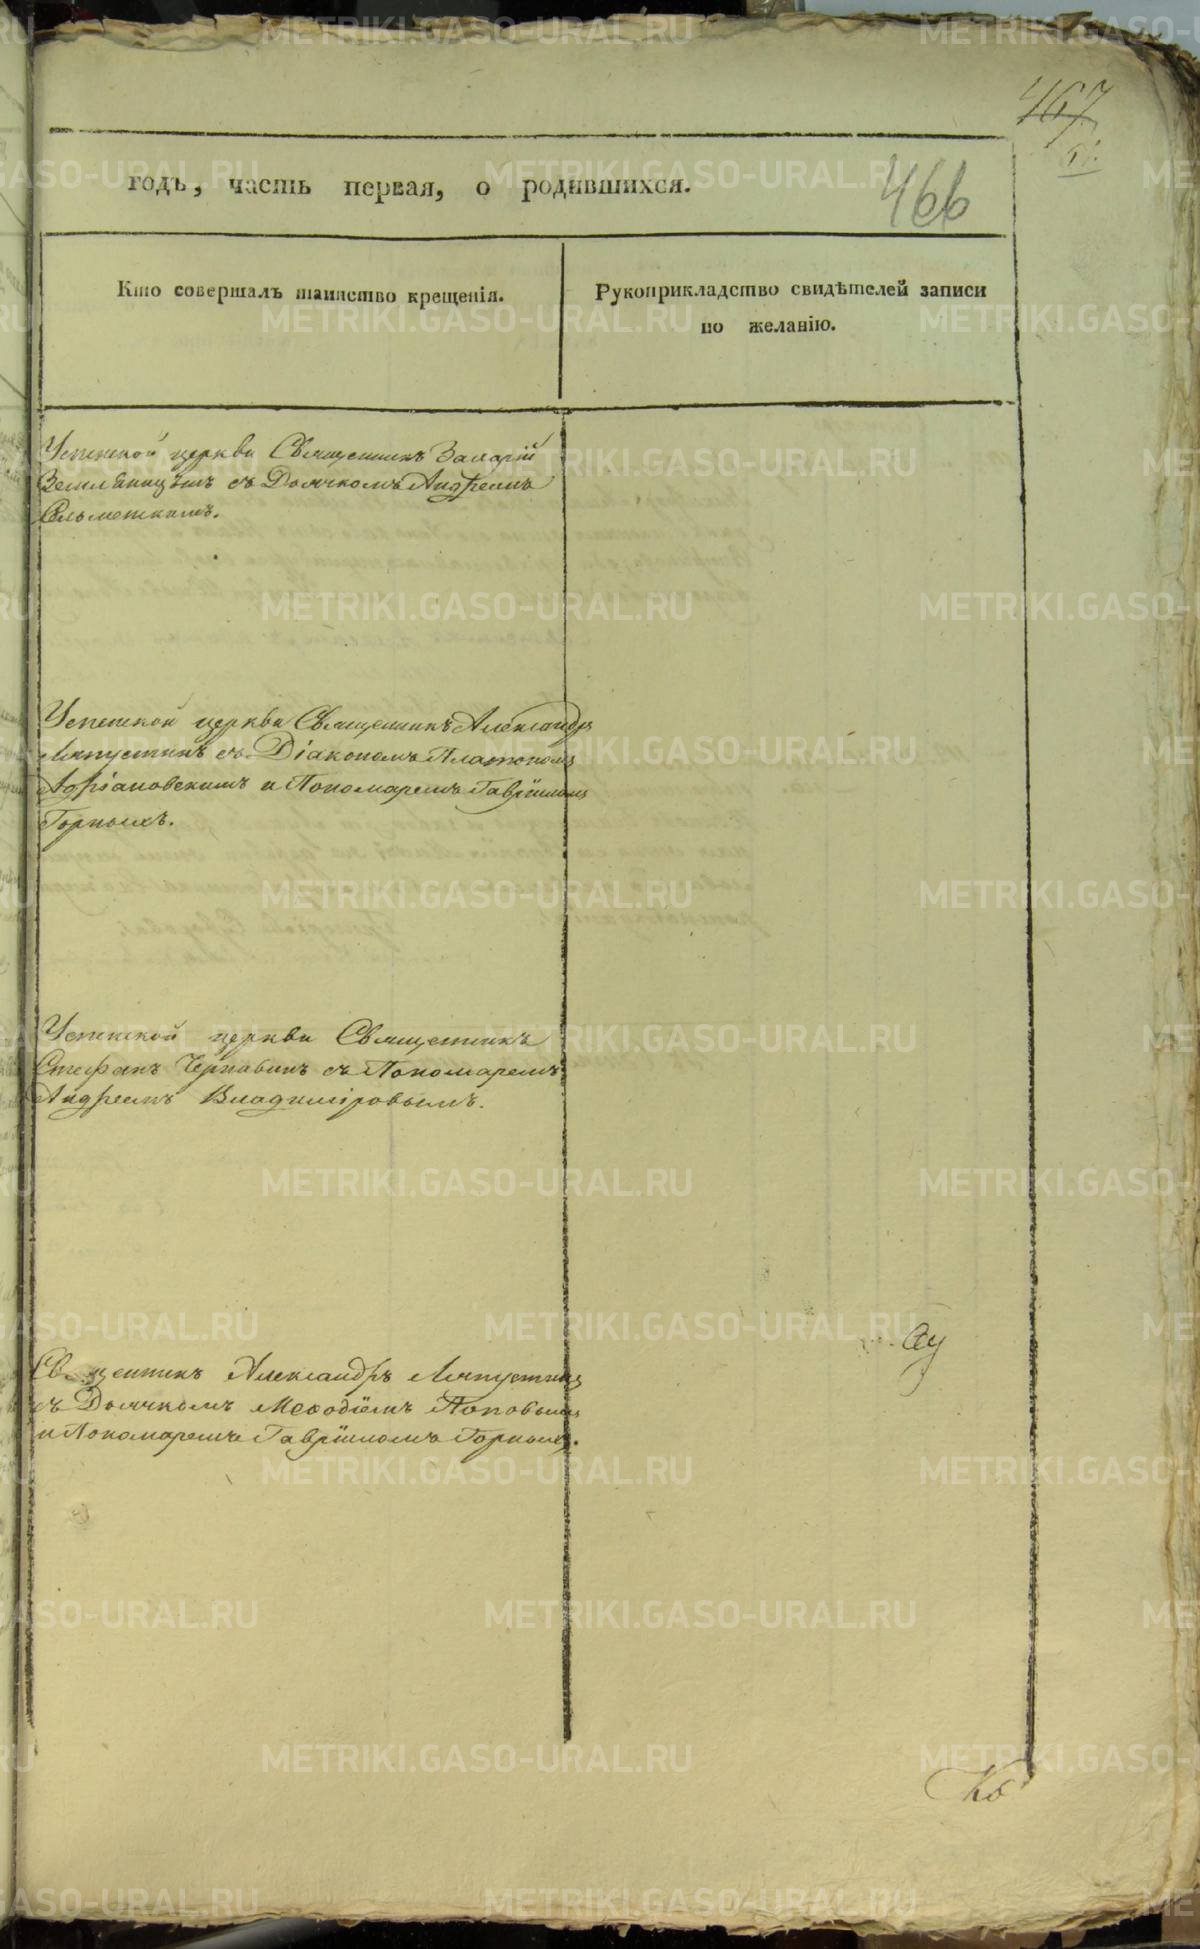 467
466
годъ, часть первая, о родившихся.
Кто совершалъ таинство крещенія.
Рукоприкладство свидѣтелей записи
по желанію.
Успенской церкви Священникъ Захарій
съ Дьячкомъ Андреемъ
Успенской церкви Священникъ Александръ
Ляпустинъ съ Діакономъ Платономъ
Адріановскимъ и Пономаремъ Гавріиломъ
Горныхъ.
Успенской церкви Священникъ
Стефанъ Черпавинъ съ Пономаремъ
Андреемъ Владиміровымъ.
Священникъ Александръ Ляпустинъ
съ Дьячкомъ Меѳодіемъ Поповымъ
и Пономаремъ Гавріиломъ Горныхъ.
METRIKI.GASO-URAL.RU